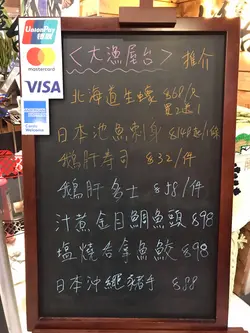 UnionPay
银联
mastercard
VISA
〈大漁屋台〉 推介
北海道生蠔 $68/只
買2送1
日本池魚刺身 $148/條
鵝肝寿司 $32/件
鵝肝多士 $38/件
汁煮金目鯛魚頭 $98
塩燒吞拿魚鮫 $98
日本沖繩豬手 $88